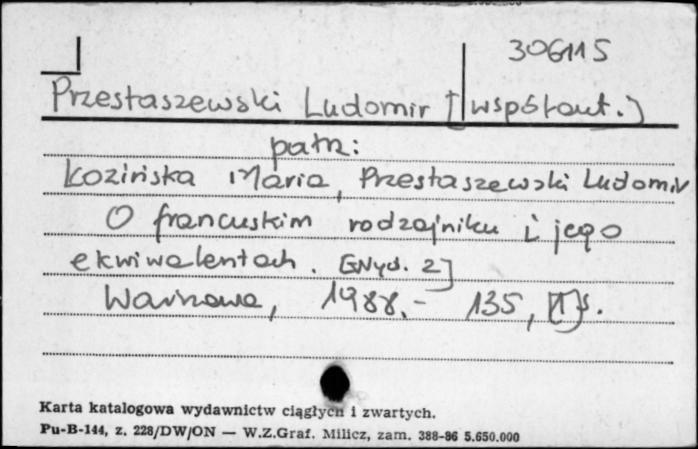 306115
Przestaszewski Ludomir [współaut.]
patrz:
Kozińska Maria, Przestaszewski Ludomir
O francuskim rodzajniku i jego
ekwiwalentach. [Wyd. 2]
Warszawa, 1988.- 135, [1] s.
Karta katalogowa wydawnictw ciągłych i zwartych.
Pu-B-144, z. 228/DW/ON — W.Z.Graf. Milicz, zam. 388-86 5.650.000